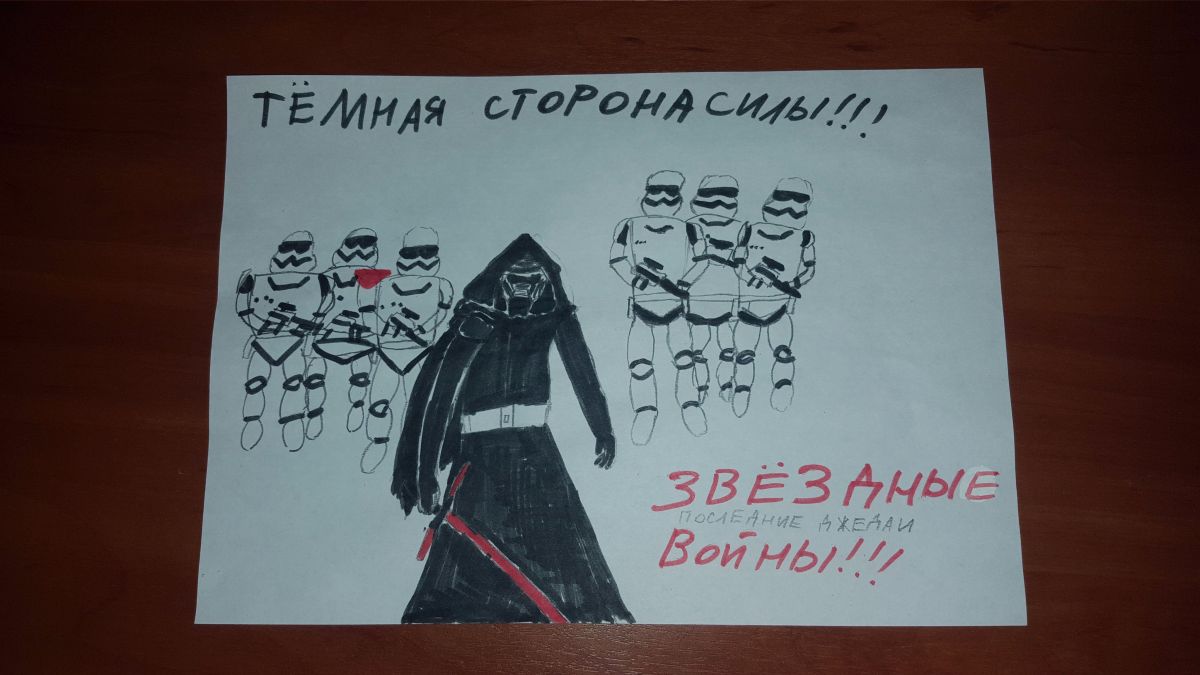 ТЁМНАЯ СТОРОНА СИЛЫ!!!
ЗВЁЗДНЫЕ
ПОСЛЕДНИЕ ДЖЕДАИ
ВОЙНЫ!!!